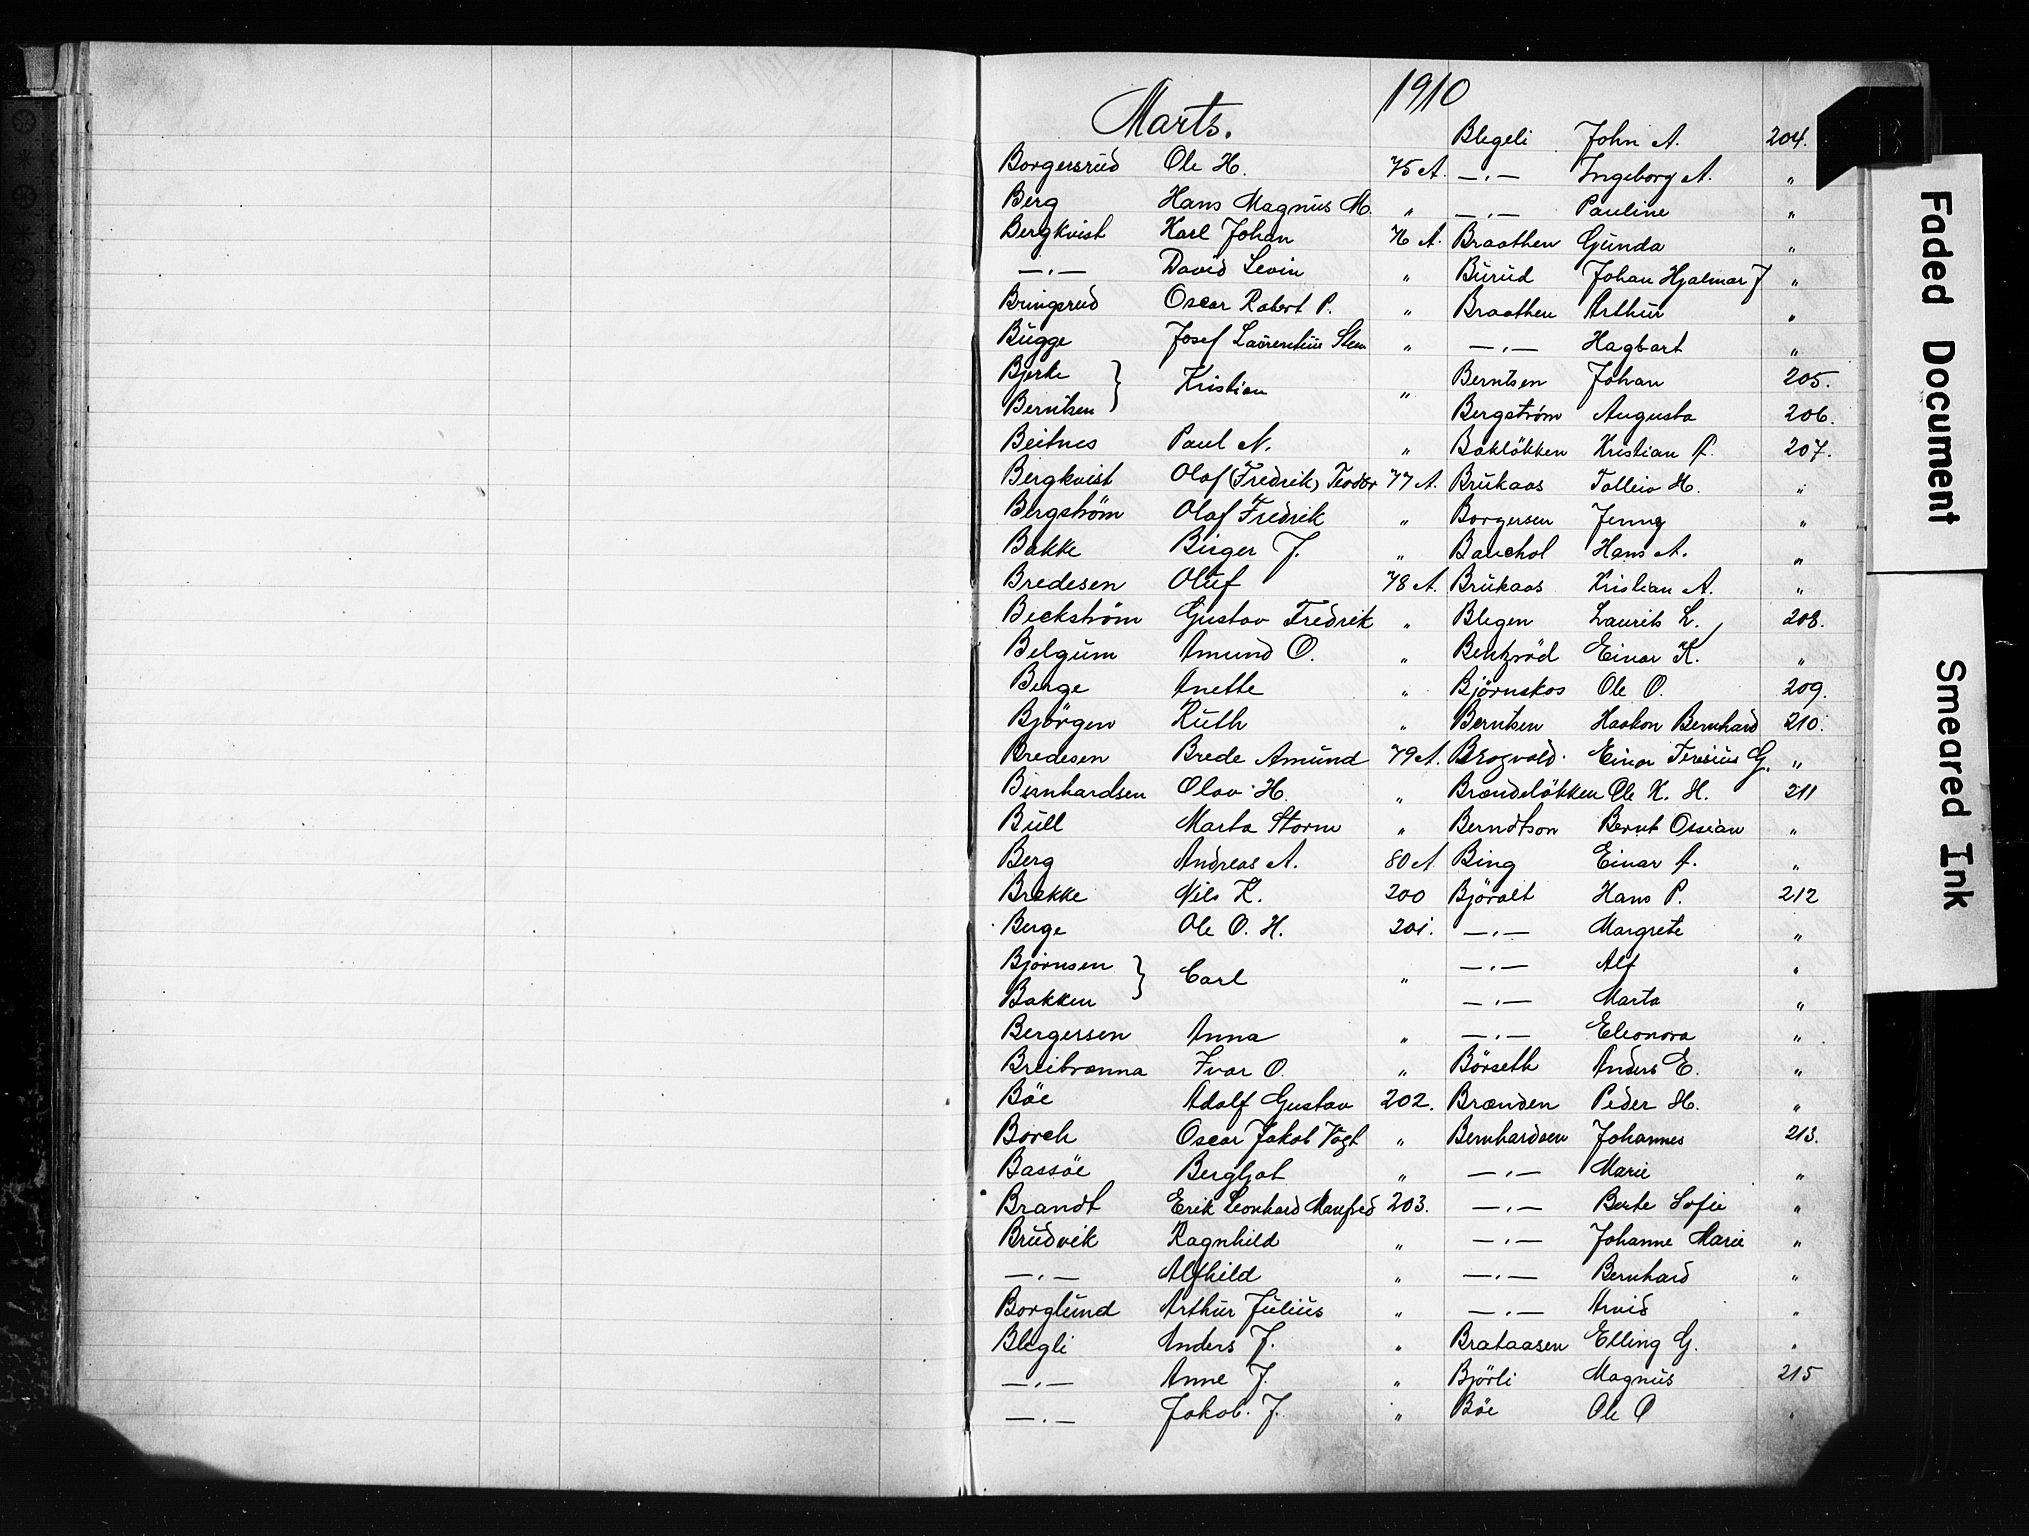 Marts. 1910
Borgersrud Ole H. 75 A.
Berg Hans Magnus M. "
Bergkvist Karl Johan 76 A.
—"— David Levin "
Bringsrud Oscar Robert P. "
Bugge Josef Laurentius "
Bjerke } Kristian "
Berntsen
Beitnes Paul N. "
Bergkvist Olof (Fredrik) Teodor 77 A.
Bergström Olof Fredrik "
Bakke Birger J. "
Bredesen Oluf 78 A.
Beckström Gustav Fredrik "
Belgum Amund O. "
Berge Anette "
Bjørgen Ruth "
Bredesen Brede Amund 79 A.
Bernhardsen Olav H. "
Bull Marta Storm "
Berg Andreas A. 80 A
Brekke Nils K. 200
Berge Ole O. H. 201.
Björnsen } Carl "
Bakken
Bergersen Anna "
Breibrænna Ivar O. "
Böe Adolf Gustav 202.
Borch Oscar Jakob Vogt "
Bassöe Bergljot "
Brandt Erik Leonhard Manfred 203.
Brudvik Ragnhild "
—"— Alfhild "
Borglund Arthur Julius "
Blegli Anders J. "
—"— Anne J. "
—"— Jakob J. "
Blegeli John A. 204.
—"— Ingeborg A. "
—"— Pauline "
Braathen Gunda "
Burud Johan Hjalmar J "
Braathen Arthur "
—"— Hagbart "
Berntsen Johan 205.
Bergström Augusta 206.
Bakløkken Kristian P. 207.
Brukaas Tolleiv H. "
Borgersen Jenny "
Bauchol Hans A. "
Brukaas Kristian A. "
Blegen Laurits L. 208.
Bentzröd Einar K. "
Björnskos Ole O. 209.
Berntsen Haakon Bernhard 210.
Brogvold Einar G. "
Brændeløkken Ole K. H. 211
Berndtson Bernt Ossian "
Bing Einar P. "
Björalt Hans P. 212
—"— Margrete "
—"— Alf "
—"— Marta "
—"— Eleonora "
Börseth Anders E. "
Brænden Peder H. "
Bernhardsen Johannes 213.
—"— Marie "
—"— Berte Sofie "
—"— Johanne Marie "
—"— Bernhard "
—"— Arvid "
Brataasen Elling G. "
Bjørli Magnus 215
Böe Ole O "
B
Faded Document
Smeared Ink